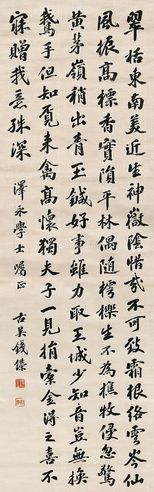 翠栝東南美近生神嶽陰惜哉不可致霜根絡雲岑仙
風振高標香實隕平林偶隨樗櫟生不為樵牧侵忽驚
黃茅嶺稍出青玉鍼好事雖力取王城少知音豈無換
鵞手但知覓来禽高懷獨夫子一見捐橐金得之喜不
寐贈我意殊深
澤永學士囑正
古吳錢棨